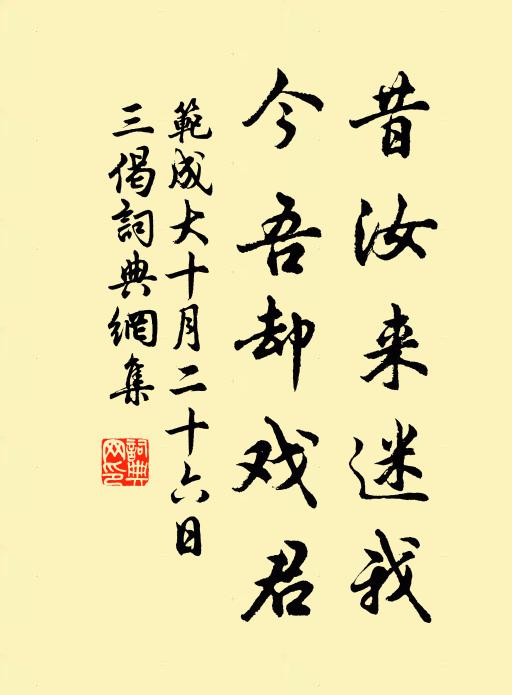 昔汝来迷我
今吾却戏君
範成大十月二十六日
三偈詞典網集
詞典
网印